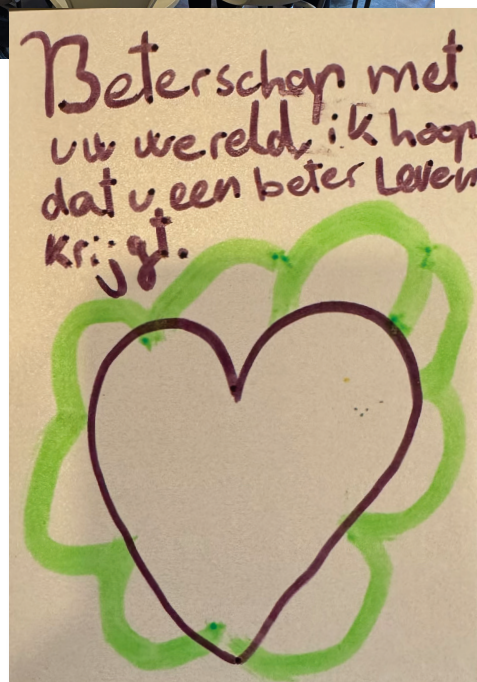 Beterschap met
uw wereld, ik hoop
dat u een beter Leven
krijgt.